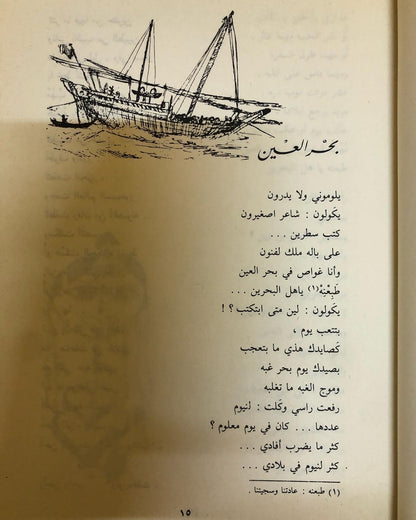 بحر العين
يلوموني ولا يدرون
يكولون : شاعر اصغيرون
كتب سطرين ...
على باله ملك لفنون
وأنا غواص في بحر العين
طَبِعْنِهْ(١) ياهل البحرين ...
يكولون : لين متى ابتكتب ؟ !
بتتعب يوم ،
كَصايدك هذي ما بتعجب
بصيدك يوم بحر غبه
وموج الغبه ما تغلبه
رفعت راسي وكَلت : لنيوم
عددها ... كان في يوم معلوم ؟
كثر ما يضرب أفادي ...
كثر لنيوم في بلادي ...
(١) طبعنه : عادتنا وسجيتنا .
١٥